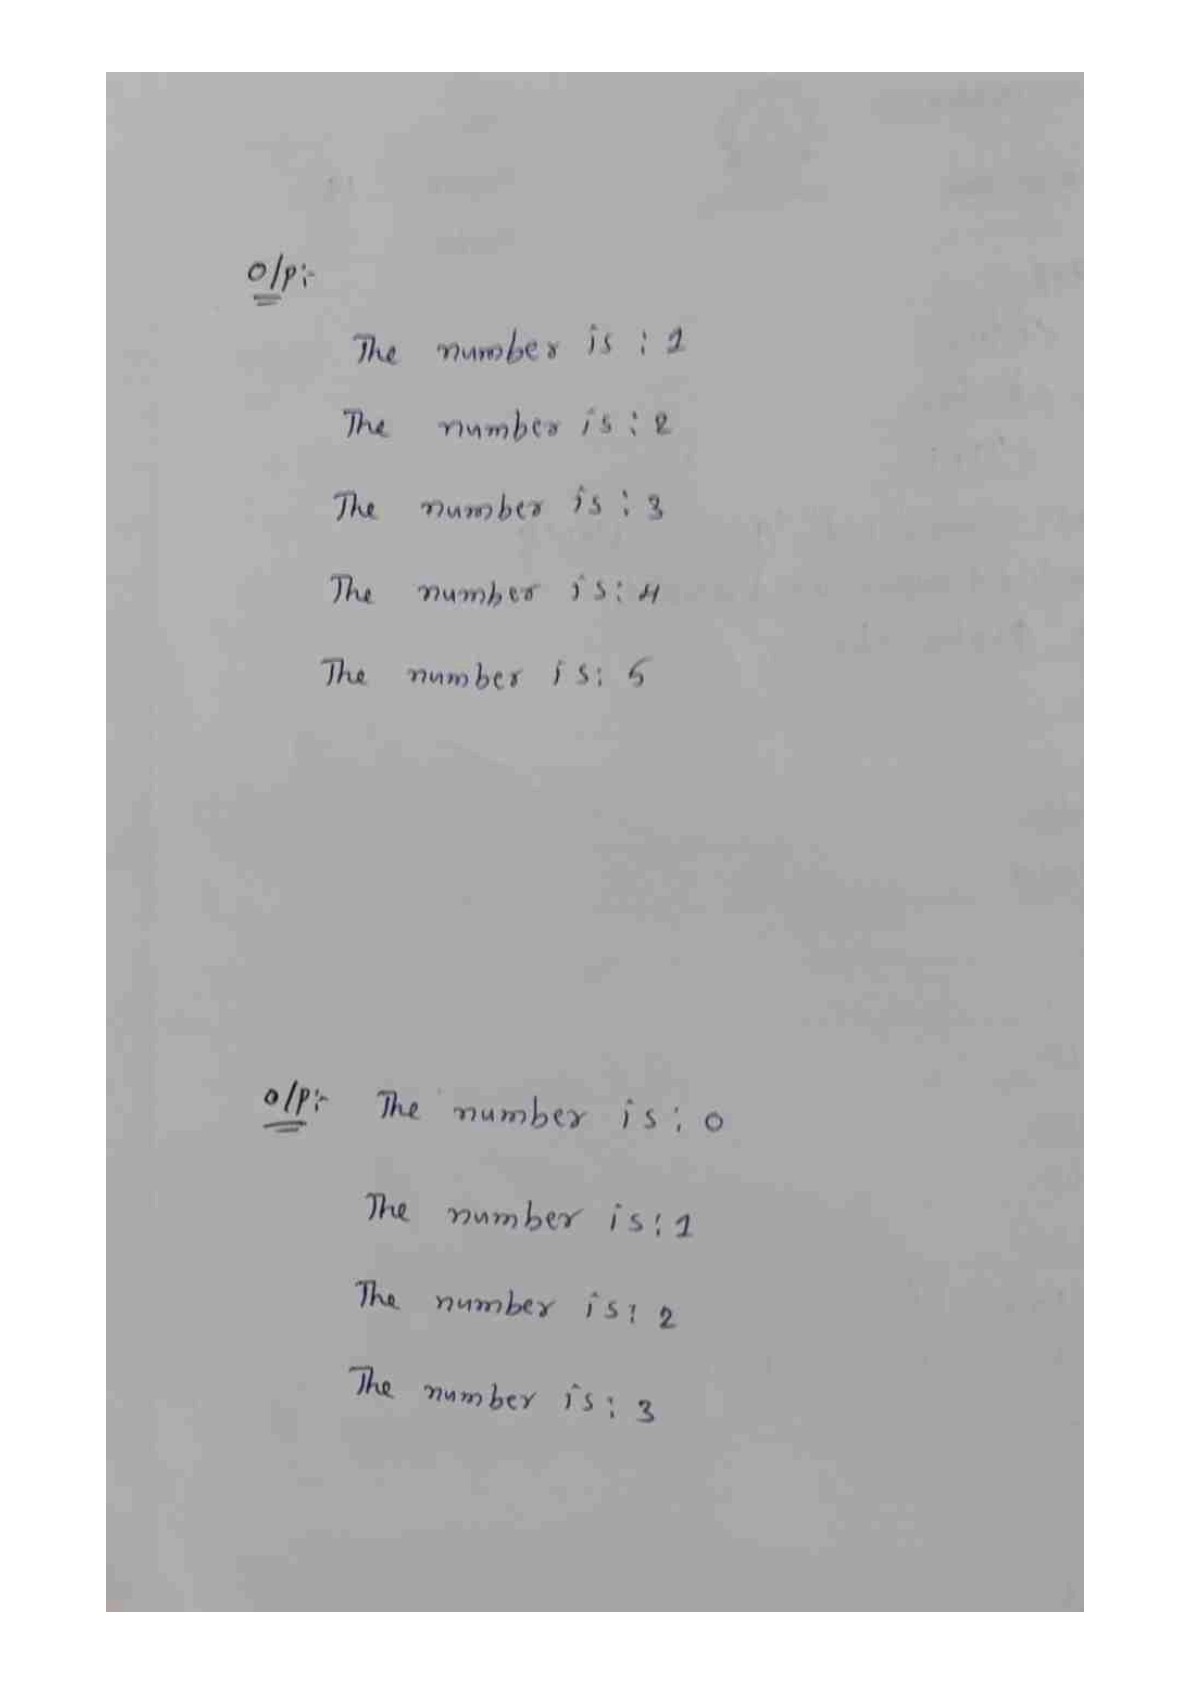 O/P:-
The number is : 1
The number is : 2
The number is : 3
The number is : 4
The number is : 5
O/P:- The number is : 0
The number is : 1
The number is : 2
The number is : 3